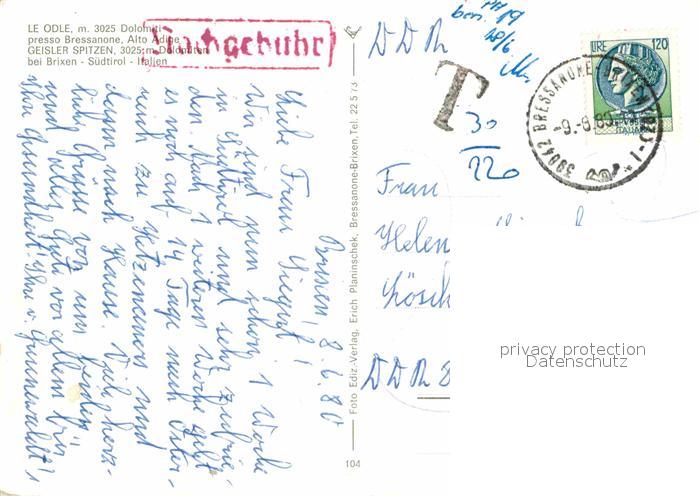 LE ODLE, m. 3025 Dolomiti
presso Bressanone, Alto Adige
GEISLER SPITZEN, 3025 m Dolomiten
bei Brixen - Südtirol - Italien
Nachgebühr
Brixen, 8.6.80
Liebe Frau
Wir sind nun schon 1 Woche
in Südtirol und sehr zufrie-
den. Nach 1 weiteren Woche geht
es noch auf 14 Tage nach Öster-
reich zu und
dann nach Hause. Viel herz-
liche Grüsse von uns
und alles Gute vor allem für
Ihre Gesundheit! Ihre
Foto Ediz.-Verlag, Erich Planinschek, Bressanone-Brixen, Tel. 22 5 73
104
DDR
T
30
120
LIRE 120
ITALIANA
39042 BRESSANONE
-9.-6.80
Frau
Helen
Lösch
DDR 8
privacy protection
Datenschutz